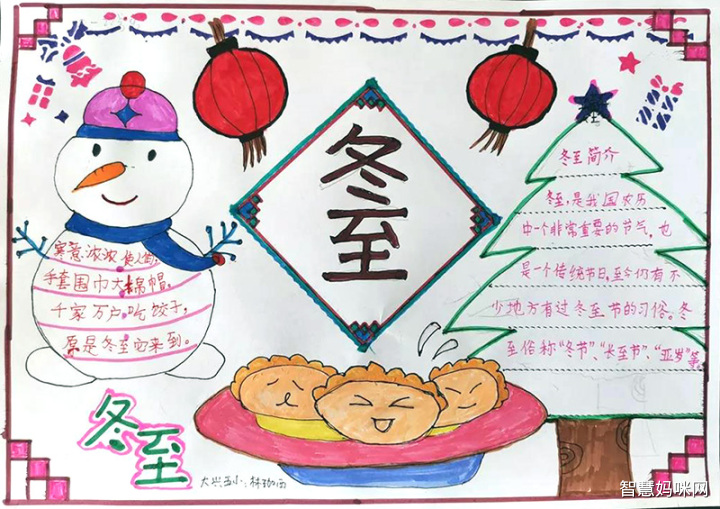 冬至
冬至简介
冬至,是我国农历
中一个非常重要的节气,也
是一个传统节日,至今仍有不
少地方有过冬至节的习俗。冬
至俗称“冬节”、“长至节”、“亚岁”等
寒意浓浓
手套围巾大棉帽,
千家万户吃饺子,
原是冬至它来到。
冬至
大兴西小:林
智慧妈咪网